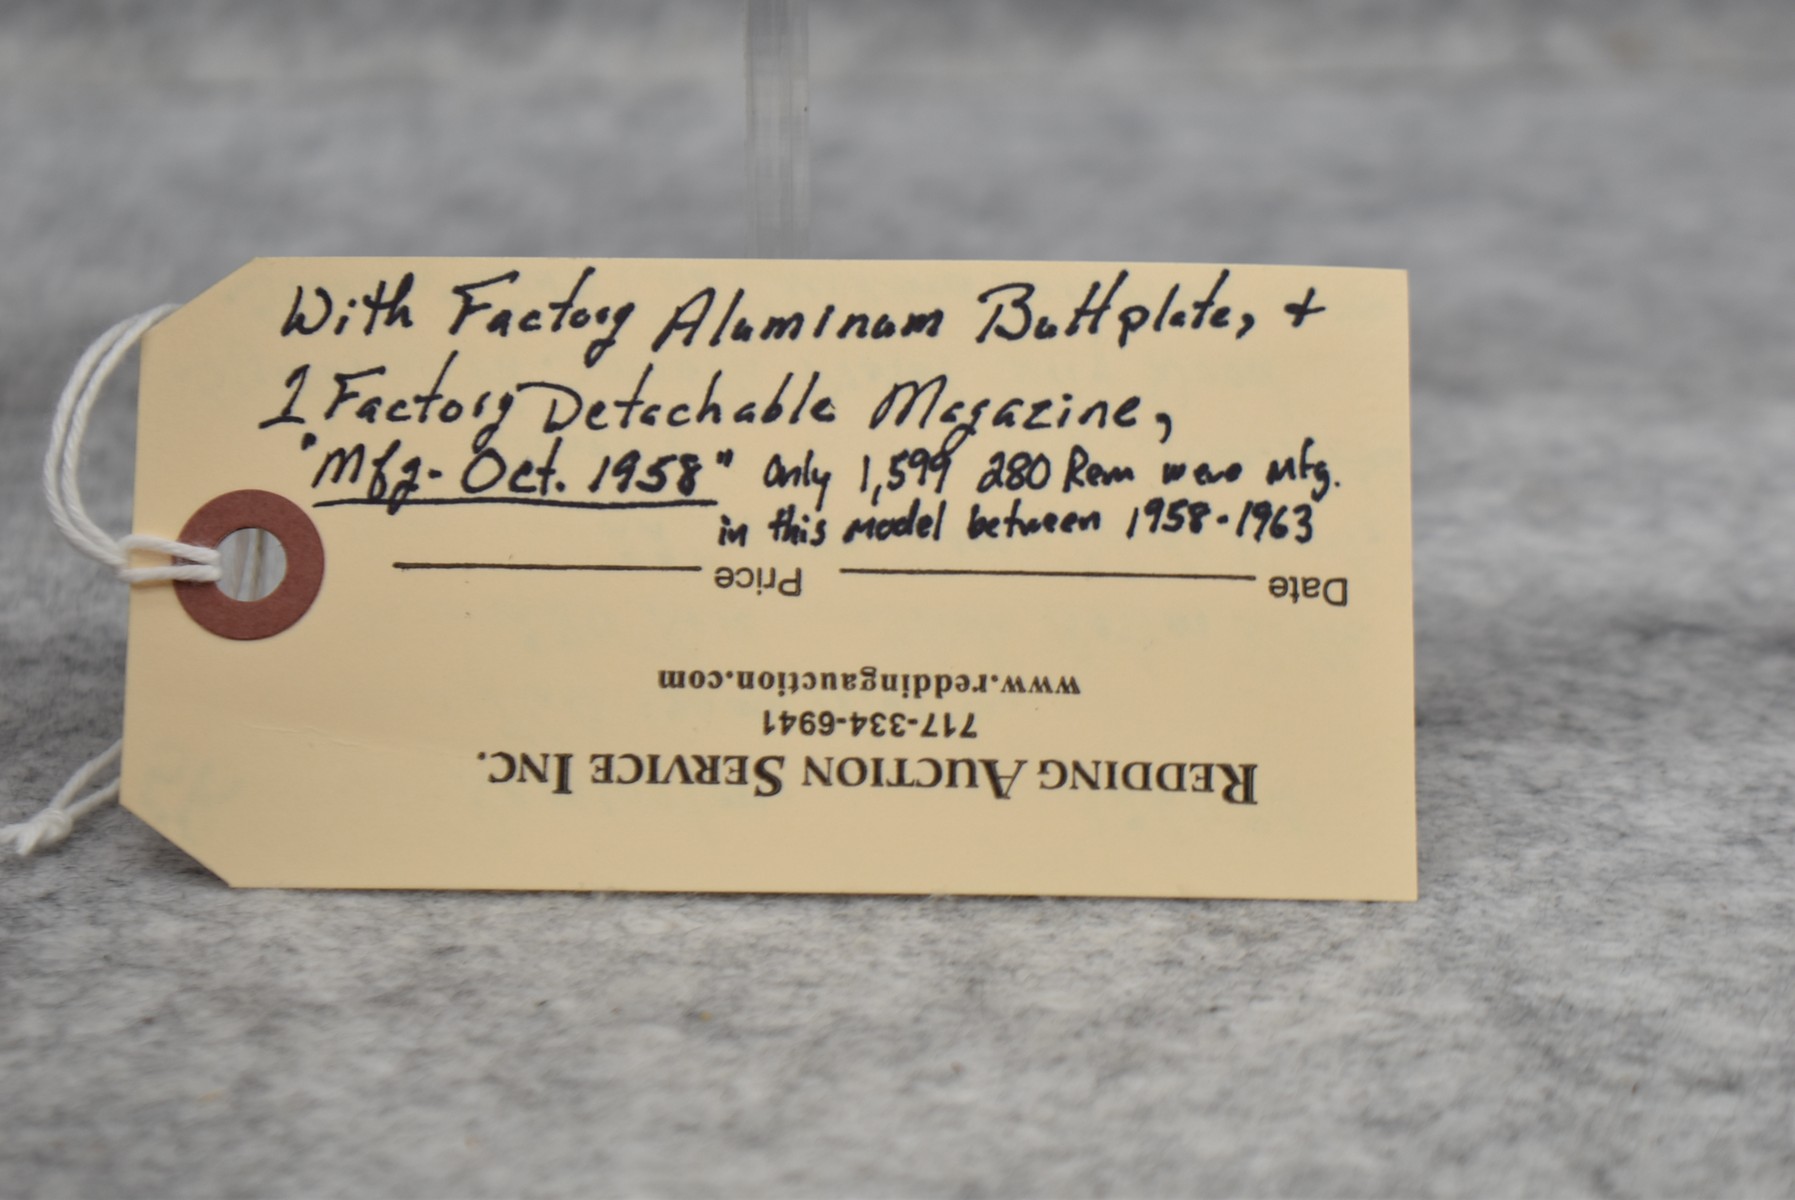 With Factory Aluminum Buttplate, +
1 Factory Detachable Magazine,
"Mfg- Oct. 1958" Only 1,599 280 Rem were Mfg.
in this model between 1958-1963
Date Price
www.reddingauction.com
717-334-6941
REDDING AUCTION SERVICE INC.